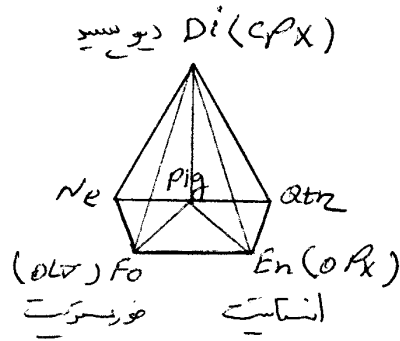 ديوپسيد Di (CPX)
Ne Pig Qtz
(OLV) Fo En (OPX)
فورستريت انستاتيت